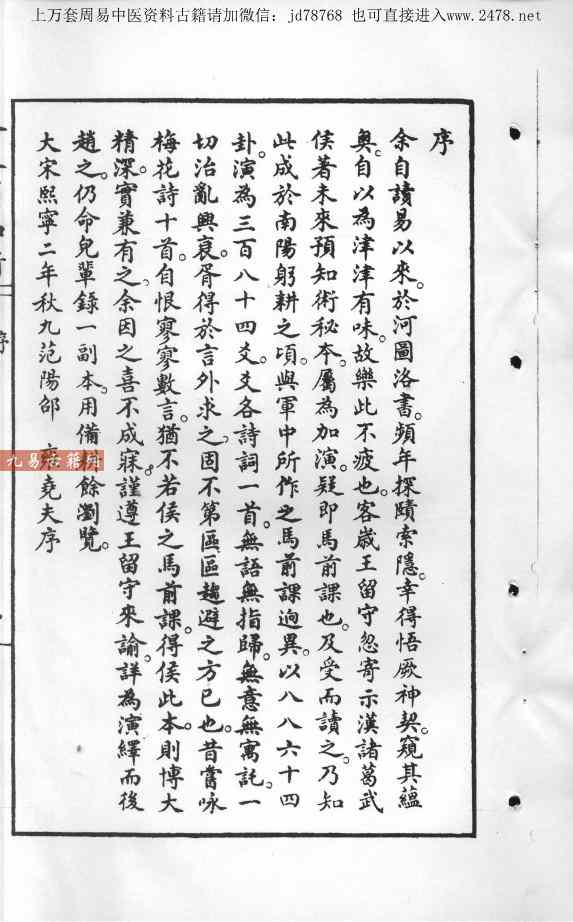 上万套周易中医资料古籍请加微信：jd78768 也可直接进入www.2478.net
序
余自讀易以來。於河圖洛書。頻年探賾索隱。幸得悟厥神契。窺其蘊
奧。自以為津津有味。故樂此不疲也。客歲王留守忽寄示漢諸葛武
侯著未來預知術秘本。屬為加演。疑即馬前課也。及受而讀之。乃知
此成於南陽躬耕之頃。與軍中所作之馬前課迥異。以八八六十四
卦。演為三百八十四爻。爻各詩詞一首。無語無指歸。無意無寓託。一
切治亂興衰。胥得於言外求之。固不第區區趨避之方已也。昔嘗咏
梅花詩十首。自恨寥寥數言。猶不若侯之馬前課。得侯此本。則博大
精深。實兼有之。余因之喜不成寐。謹遵王留守來諭。詳為演繹而後
趙之。仍命兒輩錄一副本。用備 餘瀏覽。
大宋熙寧二年秋九范陽邵 雍堯夫序
九易古籍网